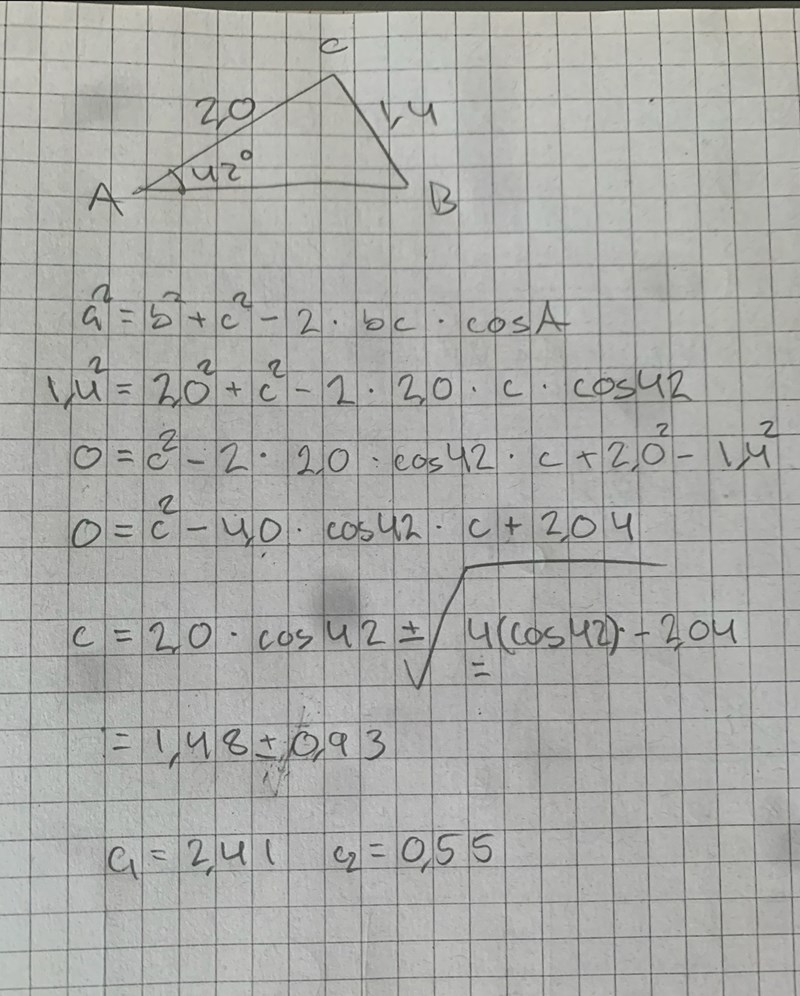 C
2,0 1,4
42°
A B
a² = b² + c² - 2 · bc · cosA
1,4² = 2,0² + c² - 2 · 2,0 · c · cos42
0 = c² - 2 · 2,0 · cos42 · c + 2,0² - 1,4²
0 = c² - 4,0 · cos42 · c + 2,04
c = 2,0 · cos42 ± √4(cos42)² - 2,04
=
= 1,48 ± 0,93
c₁ = 2,41 c₂ = 0,55